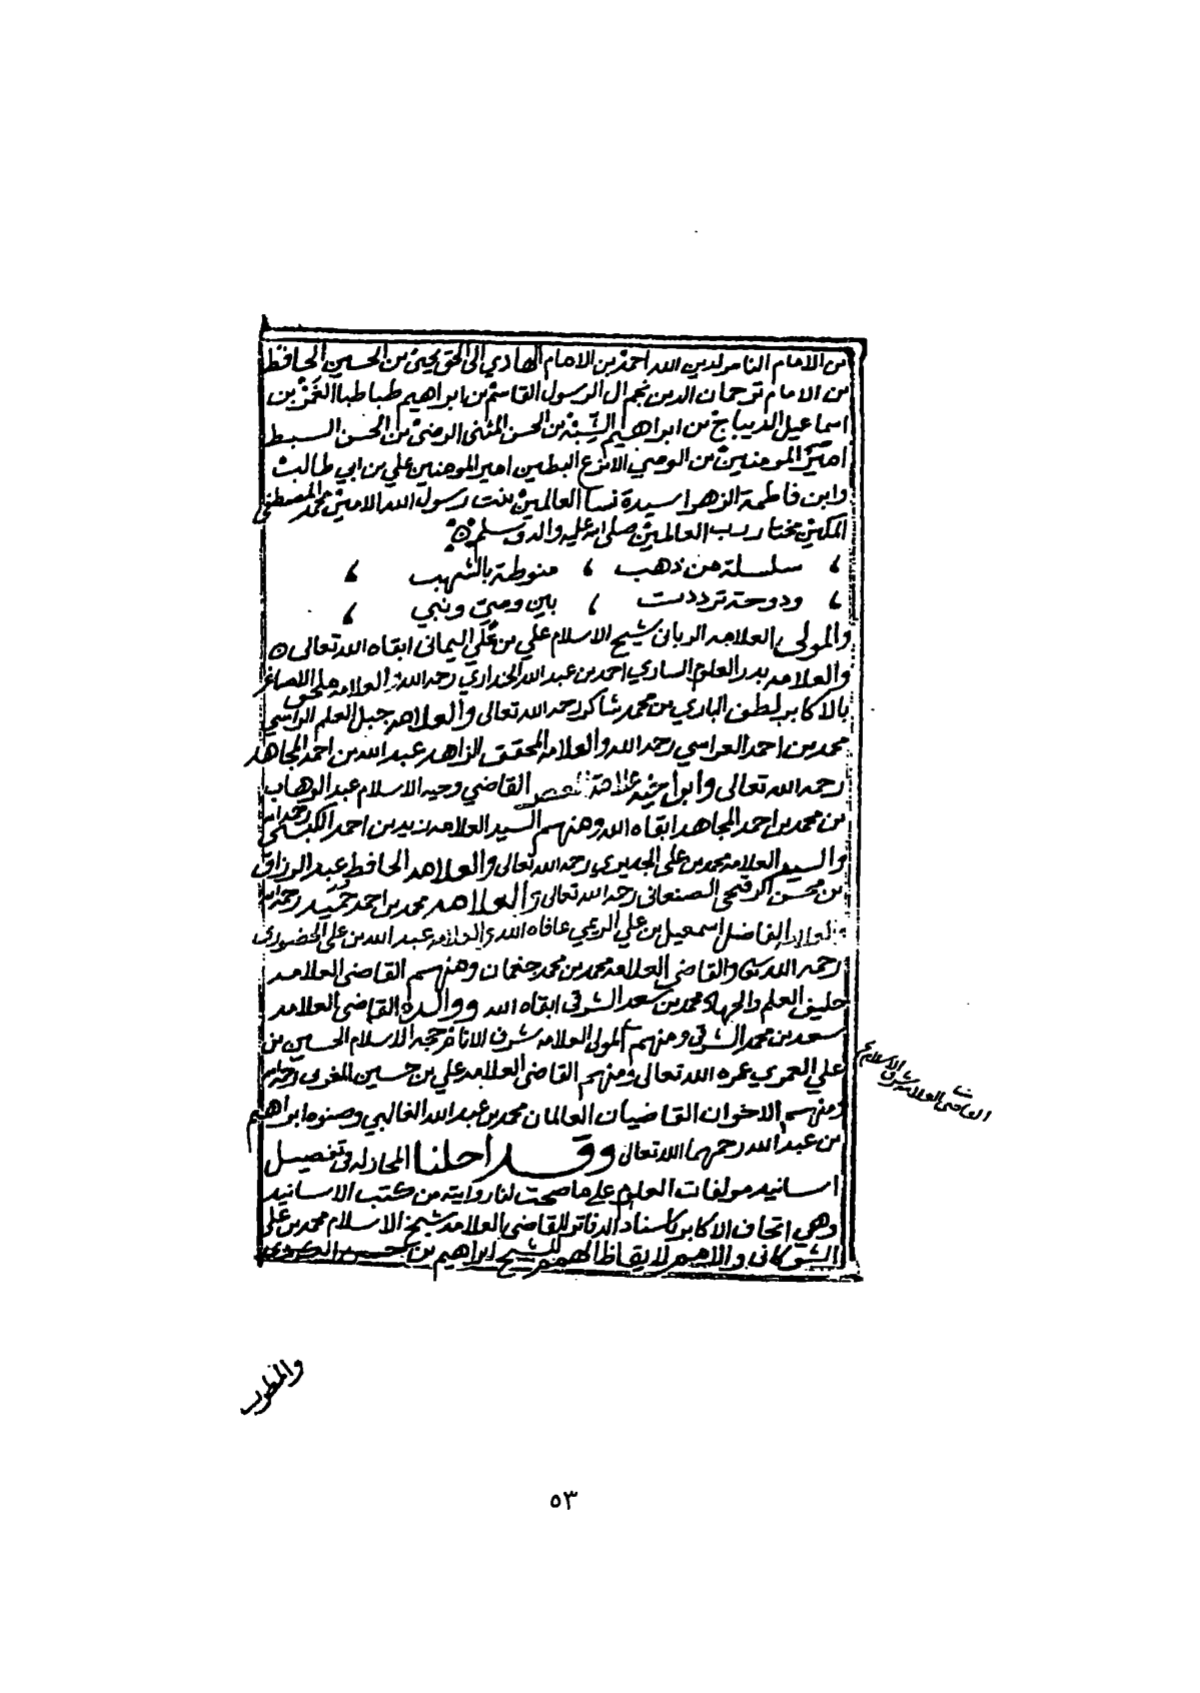 بن الامام الناصر لدين الله احمد بن الامام الهادي الى الحق يحيى بن الحسين الحافظ
بن الامام ترجمان الدين نجم ال الرسول القاسم بن ابراهيم طباطبا الغمر بن
اسماعيل الديباج بن ابراهيم الشبه بن الحسن المثنى الرضي بن الحسن السبط
امير المومنين بن الوصي الانزع البطين امير المومنين علي بن ابي طالب
وابن فاطمة الزهرا سيدة نسا العالمين بنت رسول الله الامين محمد المصطفى
المكين مختار رب العالمين صلى الله عليه واله وسلم
سلسلة من ذهب ، منوطة بالشهب
ودوحة ترددت ، بين وصي ونبي
والمولى العلامه الرباني شيخ الاسلام علي بن علي اليماني ابقاه الله تعالى
والعلامه بدر العلوم الساري احمد بن عبد الله الجنداري رحمه الله والعلامه ملحق الاصاغر
بالاكابر لطف الباري بن محمد شاكر رحمه الله تعالى والعلامه جبل العلم الراسي
محمد بن احمد العراسي رحمه الله والعلامه المحقق الزاهد عبد الله بن احمد المجاهد
رحمه الله تعالى وابن اخيه علامة العصر القاضي وجيه الاسلام عبد الوهاب
بن محمد بن احمد المجاهد ابقاه الله ومنهم السيد العلامه زيد بن احمد الكبسي رحمه الله
والسيد العلامه محمد بن علي الجديري رحمه الله تعالى والعلامه الحافظ عبد الرزاق
بن محسن الرقيحي الصنعاني رحمه الله تعالى والعلامه محمد بن احمد حميد رحمه الله
والوالد الفاضل اسمعيل بن علي الريمي عافاه الله والعلامه عبد الله بن علي الحضوري
رحمه الله والقاضي العلامه محمد بن محمد جغمان ومنهم القاضي العلامه
حليف العلم والجهاد محمد بن سعد الشرقي ابقاه الله ووالده القاضي العلامه
سعد بن محمد الشرقي ومنهم المولى العلامه شرف الانام حجه الاسلام الحسين بن
علي العمري عمره الله تعالى ومنهم القاضي العلامه علي بن حسين المغربي رحمه الله
ومنهم الاخوان القاضيان العالمان محمد بن عبد الله الغالبي وصنوه ابراهيم
بن عبد الله رحمهما الله تعالى وقد احلنا المجاز له في تفصيل
اسانيد مولفات العلوم على ما صحت لنا روايته من كتب الاسانيد
وهي اتحاف الاكابر باسناد الدفاتر للقاضي العلامه شيخ الاسلام محمد بن علي
الشوكاني والامم لايقاظ الهمم للشيخ ابراهيم بن حسن الكردي
القاضي العلامه شرف الاسلام
٥٣